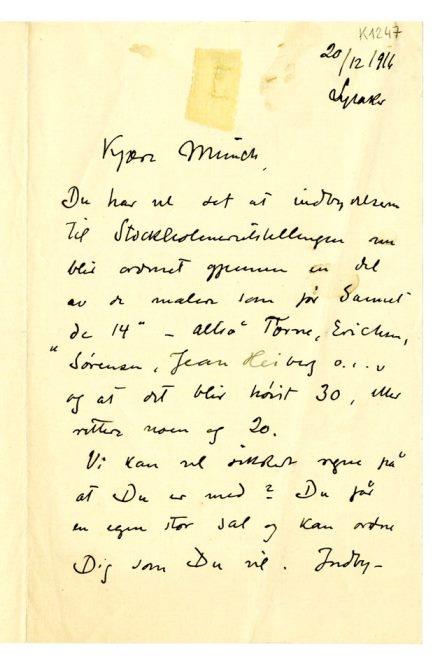 K1247
20/12 1916
Lysaker
Kjære Munch,
Du har vel set at indbydelsen
til Stockholmerutstillingen nu
blir ordnet gjennem en del
av de malere som før dannet
"de 14" – altså Torne, Erichsen,
Sørensen, Jean Heiberg o.s.v
og at det blir høist 30, eller
rettere noen og 20.
Vi kan vel sikkert regne på
at Du er med? Du får
en egen stor sal og kan ordne
Dig som Du vil. Indby-